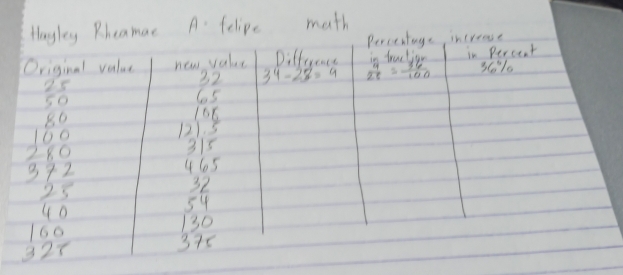 Hayley Rheamae A. felipe math
Percentage increase
Original value new value Difference in fraction in Percent
25 32 34-25=9 9/25 = 36/100 36%
50 65
80 106
100 121.5
280 315
372 465
25 32
40 54
100 130
325 375